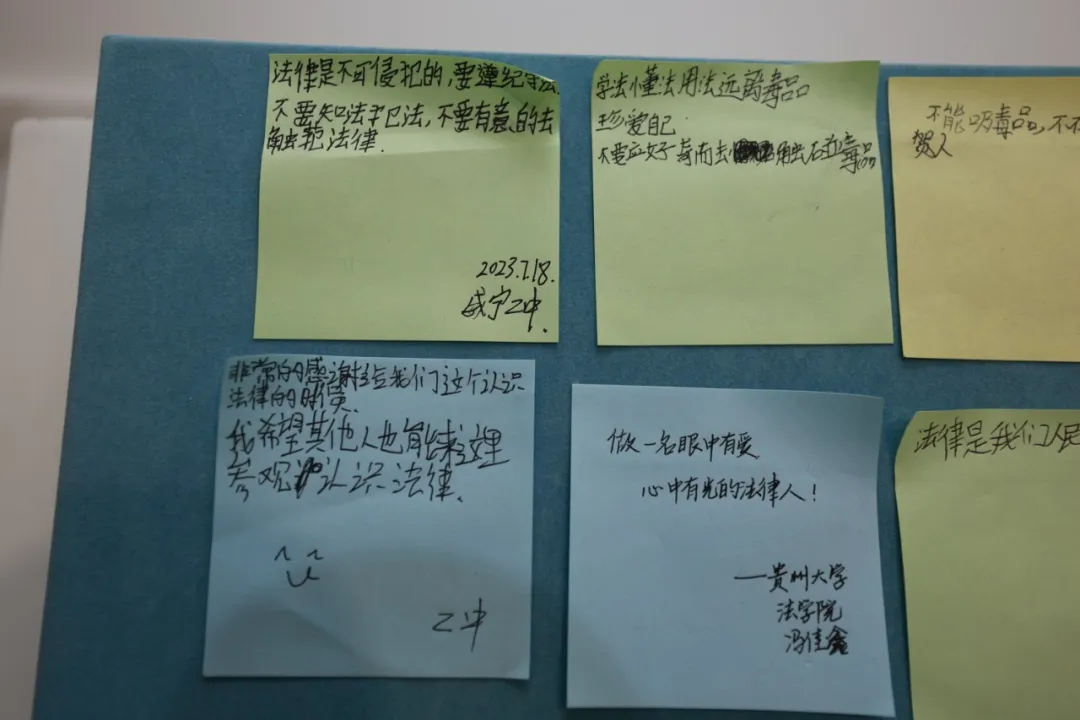 法律是不可侵犯的,要遵纪守法
不要知法犯法,不要有意的去
触犯法律.
2023.7.18.
咸宁二中.
学法懂法用法远离毒品
珍爱自己
不要应好奇而去触石并毒品
不能吸毒品,不
贺人
非常的感谢给我们这个认识
法律的时候.
我希望其他人也能来这里
参观认识法律.
二中
做一名眼中有爱
心中有光的法律人!
——贵州大学
法学院
冯佳鑫
法律是我们人民